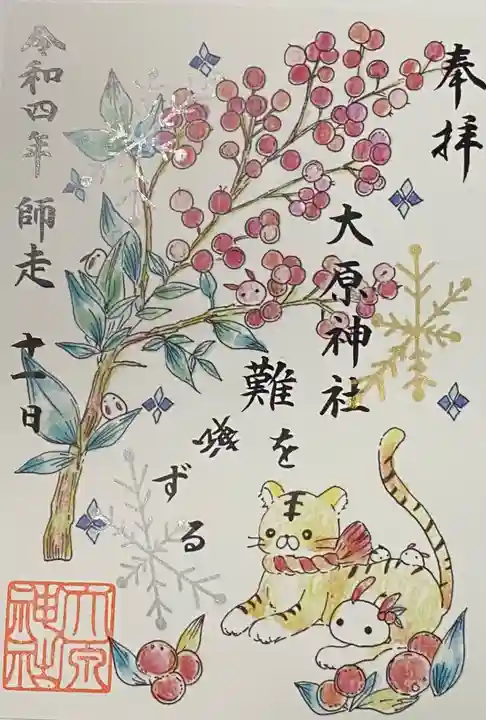 奉拝
大原神社
難を
転ずる
令和四年 師走 十一日
大原
神社